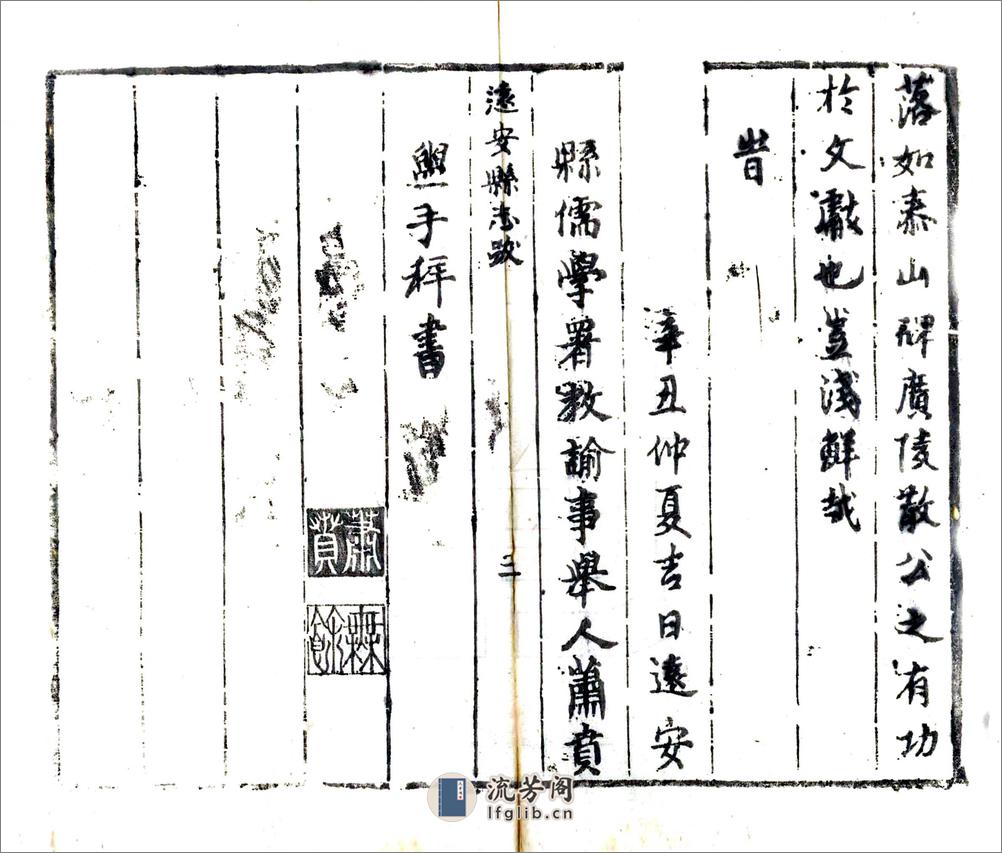 落如泰山碑廣陵散公之有功
於文獻也豈淺鮮哉
旹
辛丑仲夏吉日遠安
縣儒學署教諭事舉人蕭賁
遠安縣志跋
三
熏手拜書
蕭賁
流芳阁
lfglib.cn